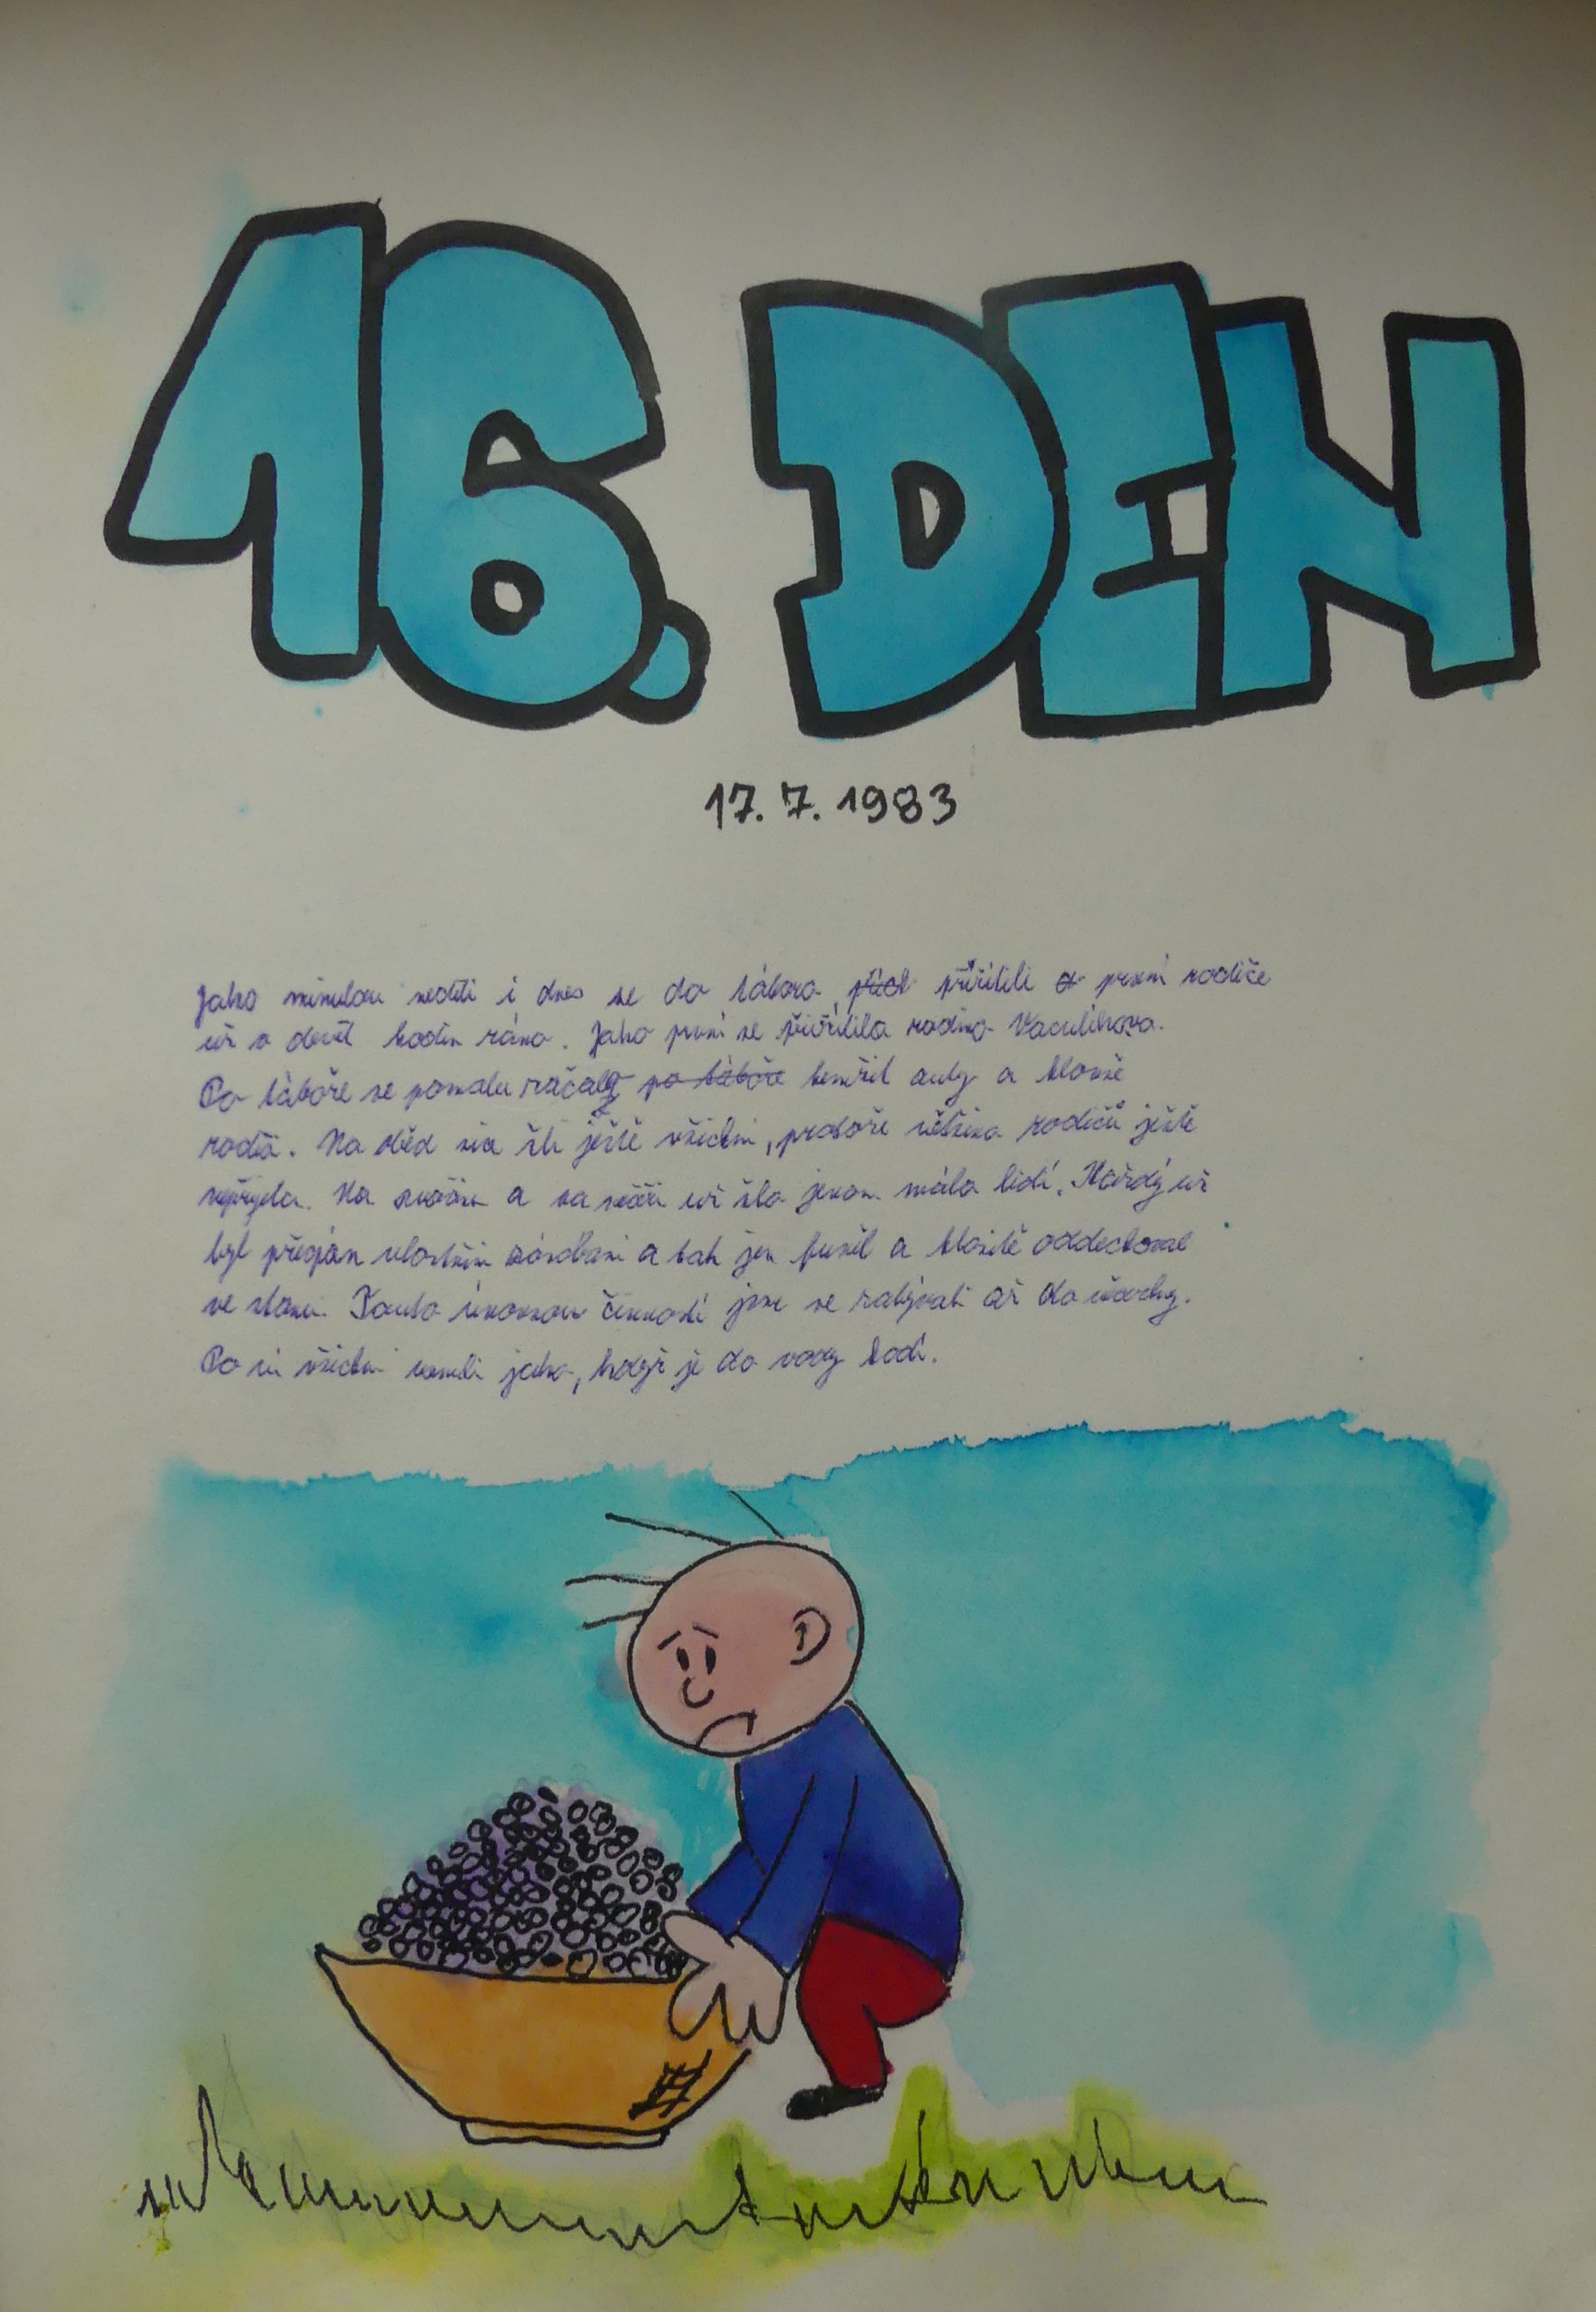 16. DEN
17. 7. 1983
Jako minulou neděli i dnes se do tábora přiřítili první rodiče
už v devět hodin ráno. Jako první se přiřítila rodina Vaculíkova.
Po táboře se pomalu začaly po táboře hemžit auty a hlavně
rodiči. Na oběd šli ještě všichni, protože většina rodičů ještě
nepřijela. Na svačinu a na večeři už šlo jenom málo lidí. Každý už
byl přecpán vlastními zásobami a tak jen funěl a hlasitě oddechoval
ve stanu. Touto únavnou činností jsme se zabývali až do večerky.
Po ní všichni usnuli jako, když je do vody hodí.